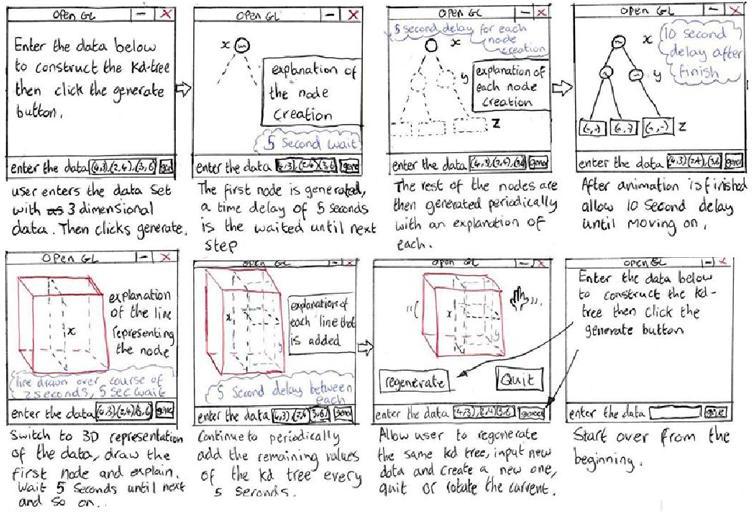 OPEN GL
Enter the data below
to construct the Kd-tree
then click the generate
button.
enter the data
user enters the data set
with 3 dimensional
data. Then clicks generate.
OPEN GL
x
explanation of
the node
creation
5 second wait
enter the data
The first node is generated,
a time delay of 5 seconds
is the waited until next
step
OPEN GL
5 second delay for each
node
creation
x
y
explanation of
each node
creation
z
enter the data
The rest of the nodes are
then generated periodically
with an explanation of
each.
OPEN GL
10 second
delay after
finish
x
y
z
enter the data
After animation is finished
allow 10 second delay
until moving on.
OPEN GL
explanation
of the line
representing
the node
x
line drawn over course of
2 seconds, 5 sec wait
enter the data
Switch to 3D representation
of the data, draw the
first node and explain.
Wait 5 seconds until next
and so on..
OPEN GL
x
explanation of
each line that
is added
5 second delay between
each
enter the data
Continue to periodically
add the remaining values
of the kd tree every
5 seconds.
OPEN GL
x
y
regenerate
Quit
enter the data
Allow user to regenerate
the same Kd tree, input new
data and create a new one,
quit or rotate the current.
OPEN GL
Enter the data below
to construct the kd-
tree then click the
generate button
enter the data
Start over from the
beginning.